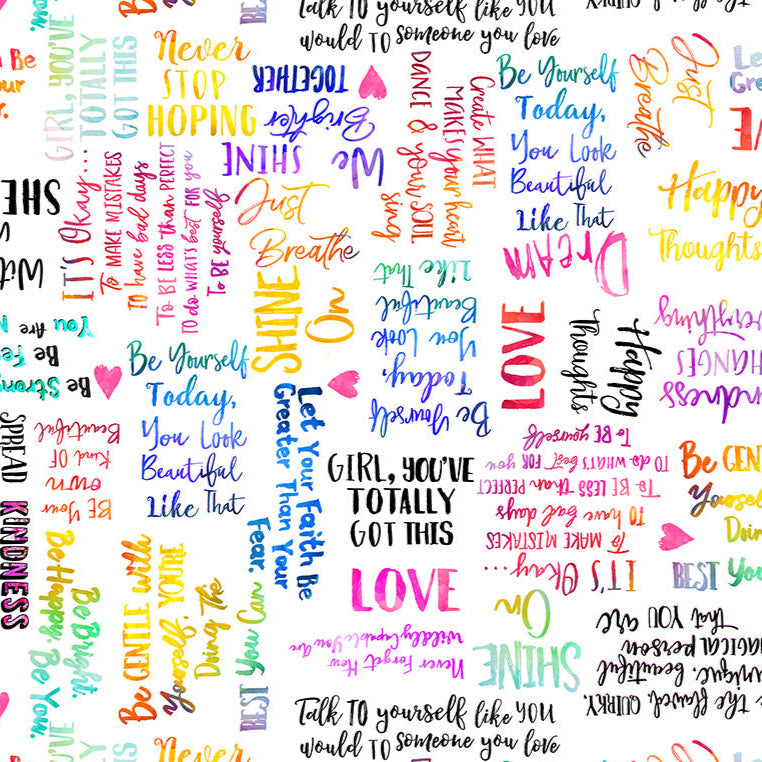 Talk TO yourself like YOU
would TO someone you love
now.
Be
GIRL, YOU'VE
TOTALLY
GOT THIS
Never
STOP
HOPING
We
SHINE
Brighter
TOGETHER
Create WHAT
MAKES your heart
sing
DANCE & your SOUL
Be Yourself
Today,
You Look
Beautiful
Like That
Just
Breathe
Happy
Thoughts
SHE
With
IT'S Okay...
TO MAKE MISTAKES
TO have bad days
To BE LESS than PERFECT
TO do WHAT'S best FOR you
To BE yourself
Just
Breathe
SHINE
On
Dream
Be Yourself
Today,
You Look
Beautiful
Like That
LOVE
Happy
Thoughts
Kindness
CHANGES
Everything
Be Strong
You Are
Be Yourself
Today,
You Look
Beautiful
Like That
Let Your Faith Be
Greater Than Your
Fear.
SPREAD
KINDNESS
BE Your
own
Kind OF
Beautiful
GIRL, YOU'VE
TOTALLY
GOT THIS
IT'S Okay...
TO MAKE MISTAKES
TO have bad days
To BE LESS than PERFECT
TO do WHAT'S best FOR you
To BE yourself
Be GEN
Yoursel
Doin
BEST You
Be Bright.
Be Happy. Be You.
Be GENTLE with
Yourself, YOU'RE
Doing The
BEST You Can
LOVE
Never Forget How
Wildly Capable You Are
SHINE
On
the flawed, QUIRKY,
unique, beautiful
MAGICAL person
That YOU are
Talk TO yourself like YOU
would TO someone you love
YOU'VE
TOTALLY
Never